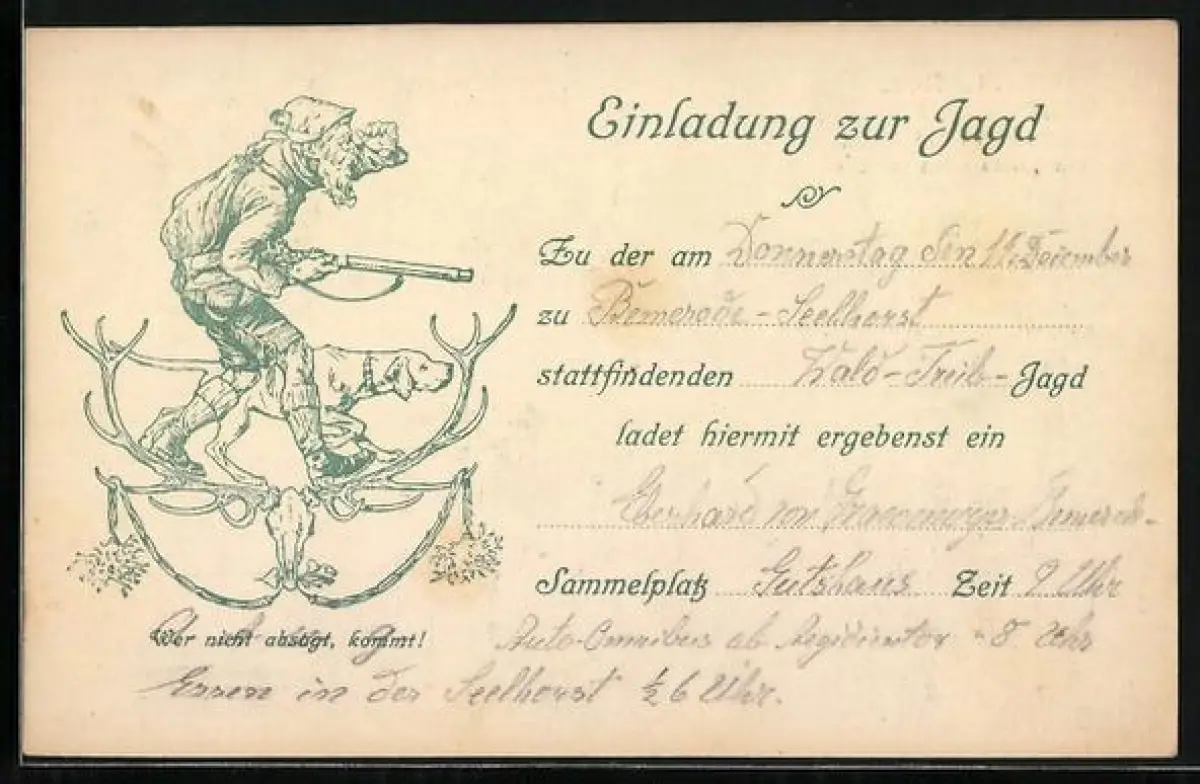 Einladung zur Jagd
Zu der am Donnerstag den Dezember
zu Bemerode-Seelhorst
stattfindenden Wald-Treib-Jagd
ladet hiermit ergebenst ein
Eberhard von
Sammelplatz Gutshaus Zeit 9 Uhr
Wer nicht absagt, kommt!
Auto-Omnibus ab Aegidientor 8 Uhr
Essen in der Seelhorst ½ 6 Uhr.